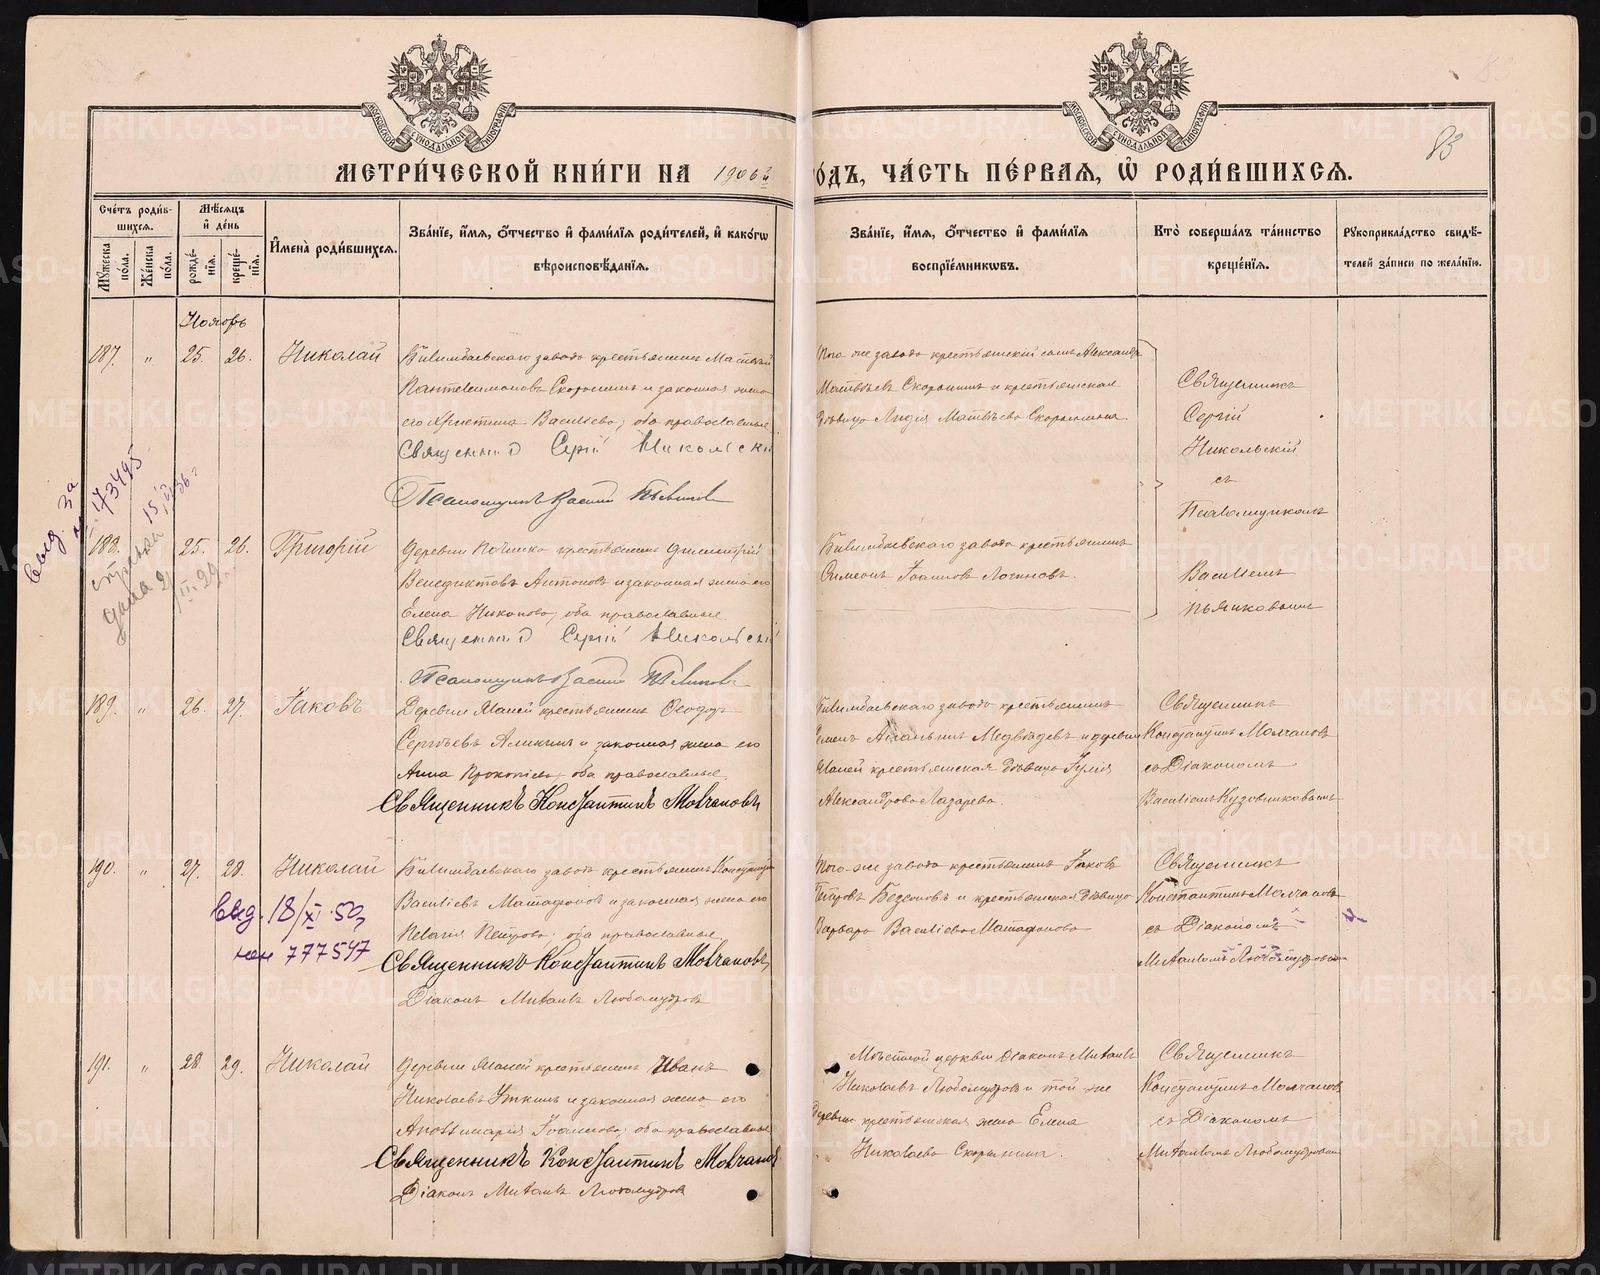 МЕТРИ́ЧЕСКОЙ КНИ́ГИ НА 1906й
ГО́ДЪ, ЧА́СТЬ ПЕ́РВАЯ, Ѡ РОДИ́ВШИХСЯ.
83
МОСКОВСКОЙ СѴНОДАЛЬНОЙ ТИПОГРАФІИ
МОСКОВСКОЙ СѴНОДАЛЬНОЙ ТИПОГРАФІИ
Сче́тъ роди́в-
шихся.
Мѣ́сяцъ
и де́нь
Му́жеска
по́ла.
Же́нска
по́ла.
рожде́-
нія.
креще́-
нія.
Имена̀ роди́вшихся.
Зва́ніе, и́мя, о́тчество и фами́лія роди́телей, и како́гѡ
вѣроисповѣ́данія.
Зва́ніе, и́мя, о́тчество и фами́лія
воспріе́мникѡвъ.
Кто̀ соверша́лъ та́инство
креще́нія.
Рукоприкла́дство свидѣ́-
телей за́писи по жела́нію.
Ноябрь
187. " 25. 26. Николай
Билимбаевскаго завода крестьянинъ Матвѣй
Пантелимоновъ Скорынинъ и законная жена
его Христина Васильева, оба православные.
Священник Сергій Никольскій
Псаломщикъ Василій Пьянковъ
Того же завода крестьянскій сынъ Александръ
Матвѣевъ Скорынинъ и крестьянская
дѣвица Лидія Матвѣева Скорынина.
Священникъ
Сергій
Никольскій
съ
Псаломщикомъ
Василіемъ
Пьянковымъ
выд. за
№ 173495
15/VI 36 г
справка
дана 2/II-29
188. 25. 26. Григорій
Деревни Починка крестьянинъ Димитрій
Венедиктовъ Антоновъ и законная жена его
Елена Никонова, оба православные.
Священник Сергій Никольскій
Псаломщикъ Василій Пьянковъ
Билимбаевскаго завода крестьянинъ
Симеонъ Іоанновъ Логиновъ.
189. " 26. 27. Іаковъ
Деревни Макей крестьянинъ Ѳеодоръ
Сергѣевъ Аликинъ и законная жена его
Анна Прокопіева, оба православные.
Священникъ Константинъ Молчановъ
Билимбаевскаго завода крестьянинъ
Ананьинъ Медвѣдевъ и деревни
крестьянская дѣвица Іулія
Александрова Лазарева.
Священникъ
Константинъ Молчановъ
съ Діакономъ
Василіемъ Кузовниковымъ
190. " 27. 28. Николай
Билимбаевскаго завода крестьянинъ Константинъ
Васильевъ Матафоновъ и законная жена его
Пелагія Петрова, оба православные.
Священникъ Константинъ Молчановъ
Діаконъ Михаилъ Любомудровъ
выд. 18/XI 50 г
777547
Того-же завода крестьянинъ Іаковъ
Петровъ Безсоновъ и крестьянская дѣвица
Варвара Васильева Матафонова
Священникъ
Константинъ Молчановъ
съ Діакономъ
Михаиломъ Любомудровымъ
191. " 28. 29. Николай
Деревни Макей крестьянинъ Иванъ
Николаевъ Уткинъ и законная жена его
Аполлинарія Іоаннова, оба православные
Священникъ Константинъ Молчановъ
Діаконъ Михаилъ Любомудровъ
Мѣстной церкви Діаконъ Михаилъ
Николаевъ Любомудровъ и той же
деревни крестьянская жена Елена
Николаева Скорынина.
Священникъ
Константинъ Молчановъ
съ Діакономъ
Михаиломъ Любомудровымъ
METRIKI.GASO-URAL.RU